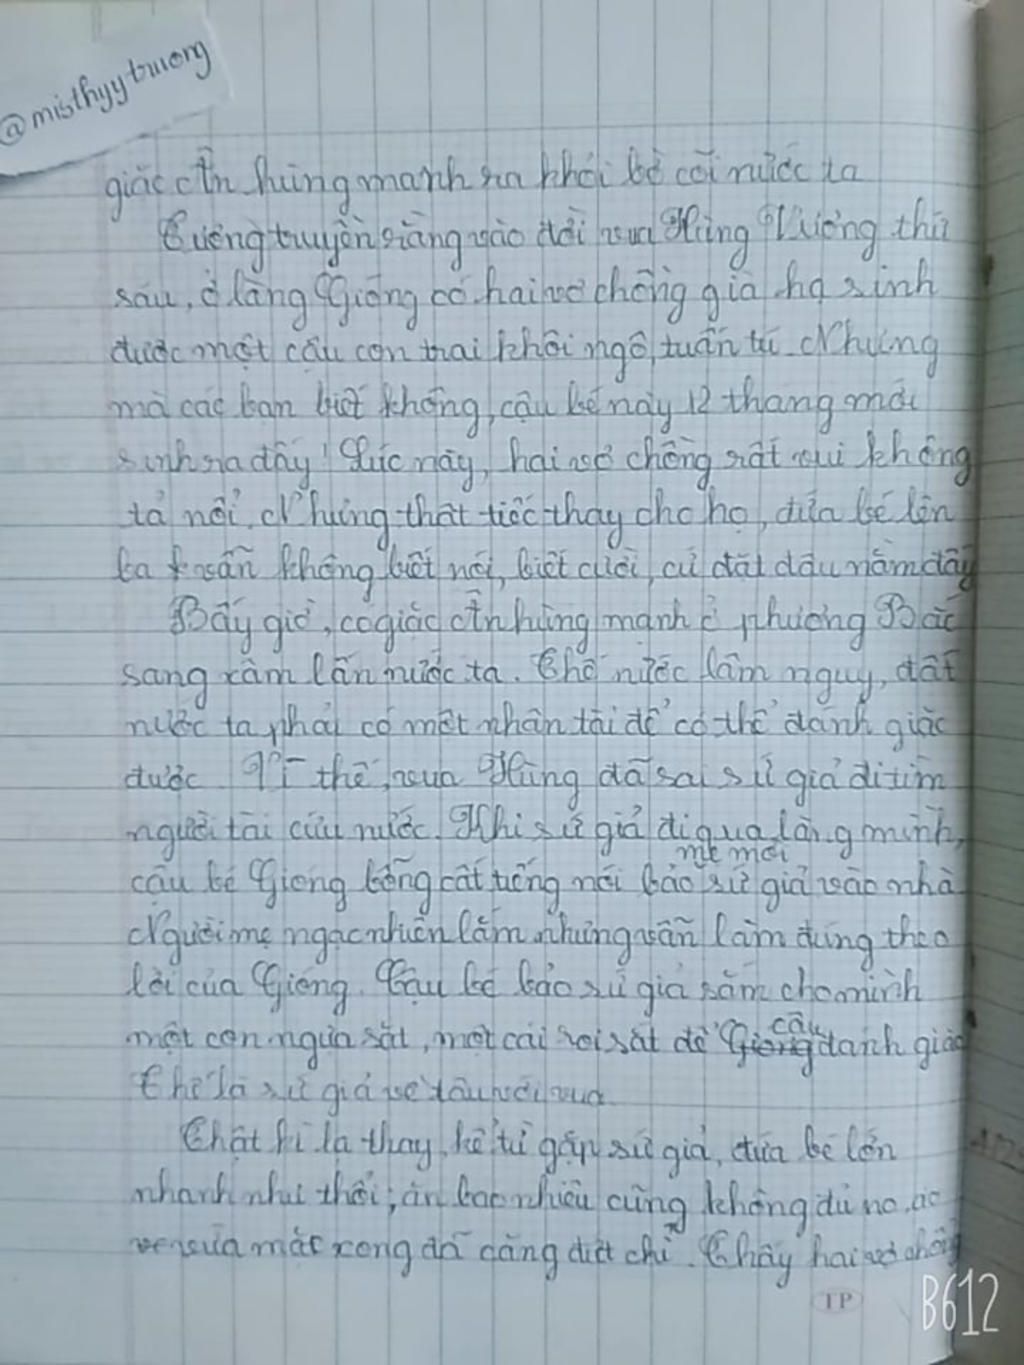 @misthyytruong
giặc Ân hùng mạnh ra khỏi bờ cõi nước ta
Tương truyền rằng vào đời vua Hùng Vương thứ
sáu, ở làng Gióng có hai vợ chồng già họ sinh
được một cậu con trai khôi ngô, tuấn tú. Nhưng
mà các bạn biết không, cậu bé này 12 tháng mới
sinh ra đấy! Lúc này, hai vợ chồng rất vui không
tả nổi. Nhưng thật tiếc thay cho họ, đứa bé lên
ba vẫn không biết nói, biết cười, cứ đặt đâu nằm đấy
Bấy giờ, có giặc Ân hùng mạnh ở phương Bắc
sang xâm lấn nước ta. Thế nước lâm nguy, đất
nước ta phải có một nhân tài để có thể đánh giặc
được. Vì thế, vua Hùng đã sai sứ giả đi tìm
người tài cứu nước. Khi sứ giả đi qua làng mình,
cậu bé Gióng bỗng cất tiếng nói bảo mẹ mời sứ giả vào nhà
Người mẹ ngạc nhiên lắm nhưng vẫn làm đúng theo
lời của Gióng. Cậu bé bảo sứ giả sắm cho mình
một con ngựa sắt, một cái roi sắt để cậu đánh giặc
Thế là sứ giả về tâu với vua
Thật kì lạ thay, kể từ gặp sứ giả, đứa bé lớn
nhanh như thổi; ăn bao nhiêu cũng không đủ no, áo
vừa mặc xong đã căng đứt chỉ. Thấy hai vợ chồng
TP
B612